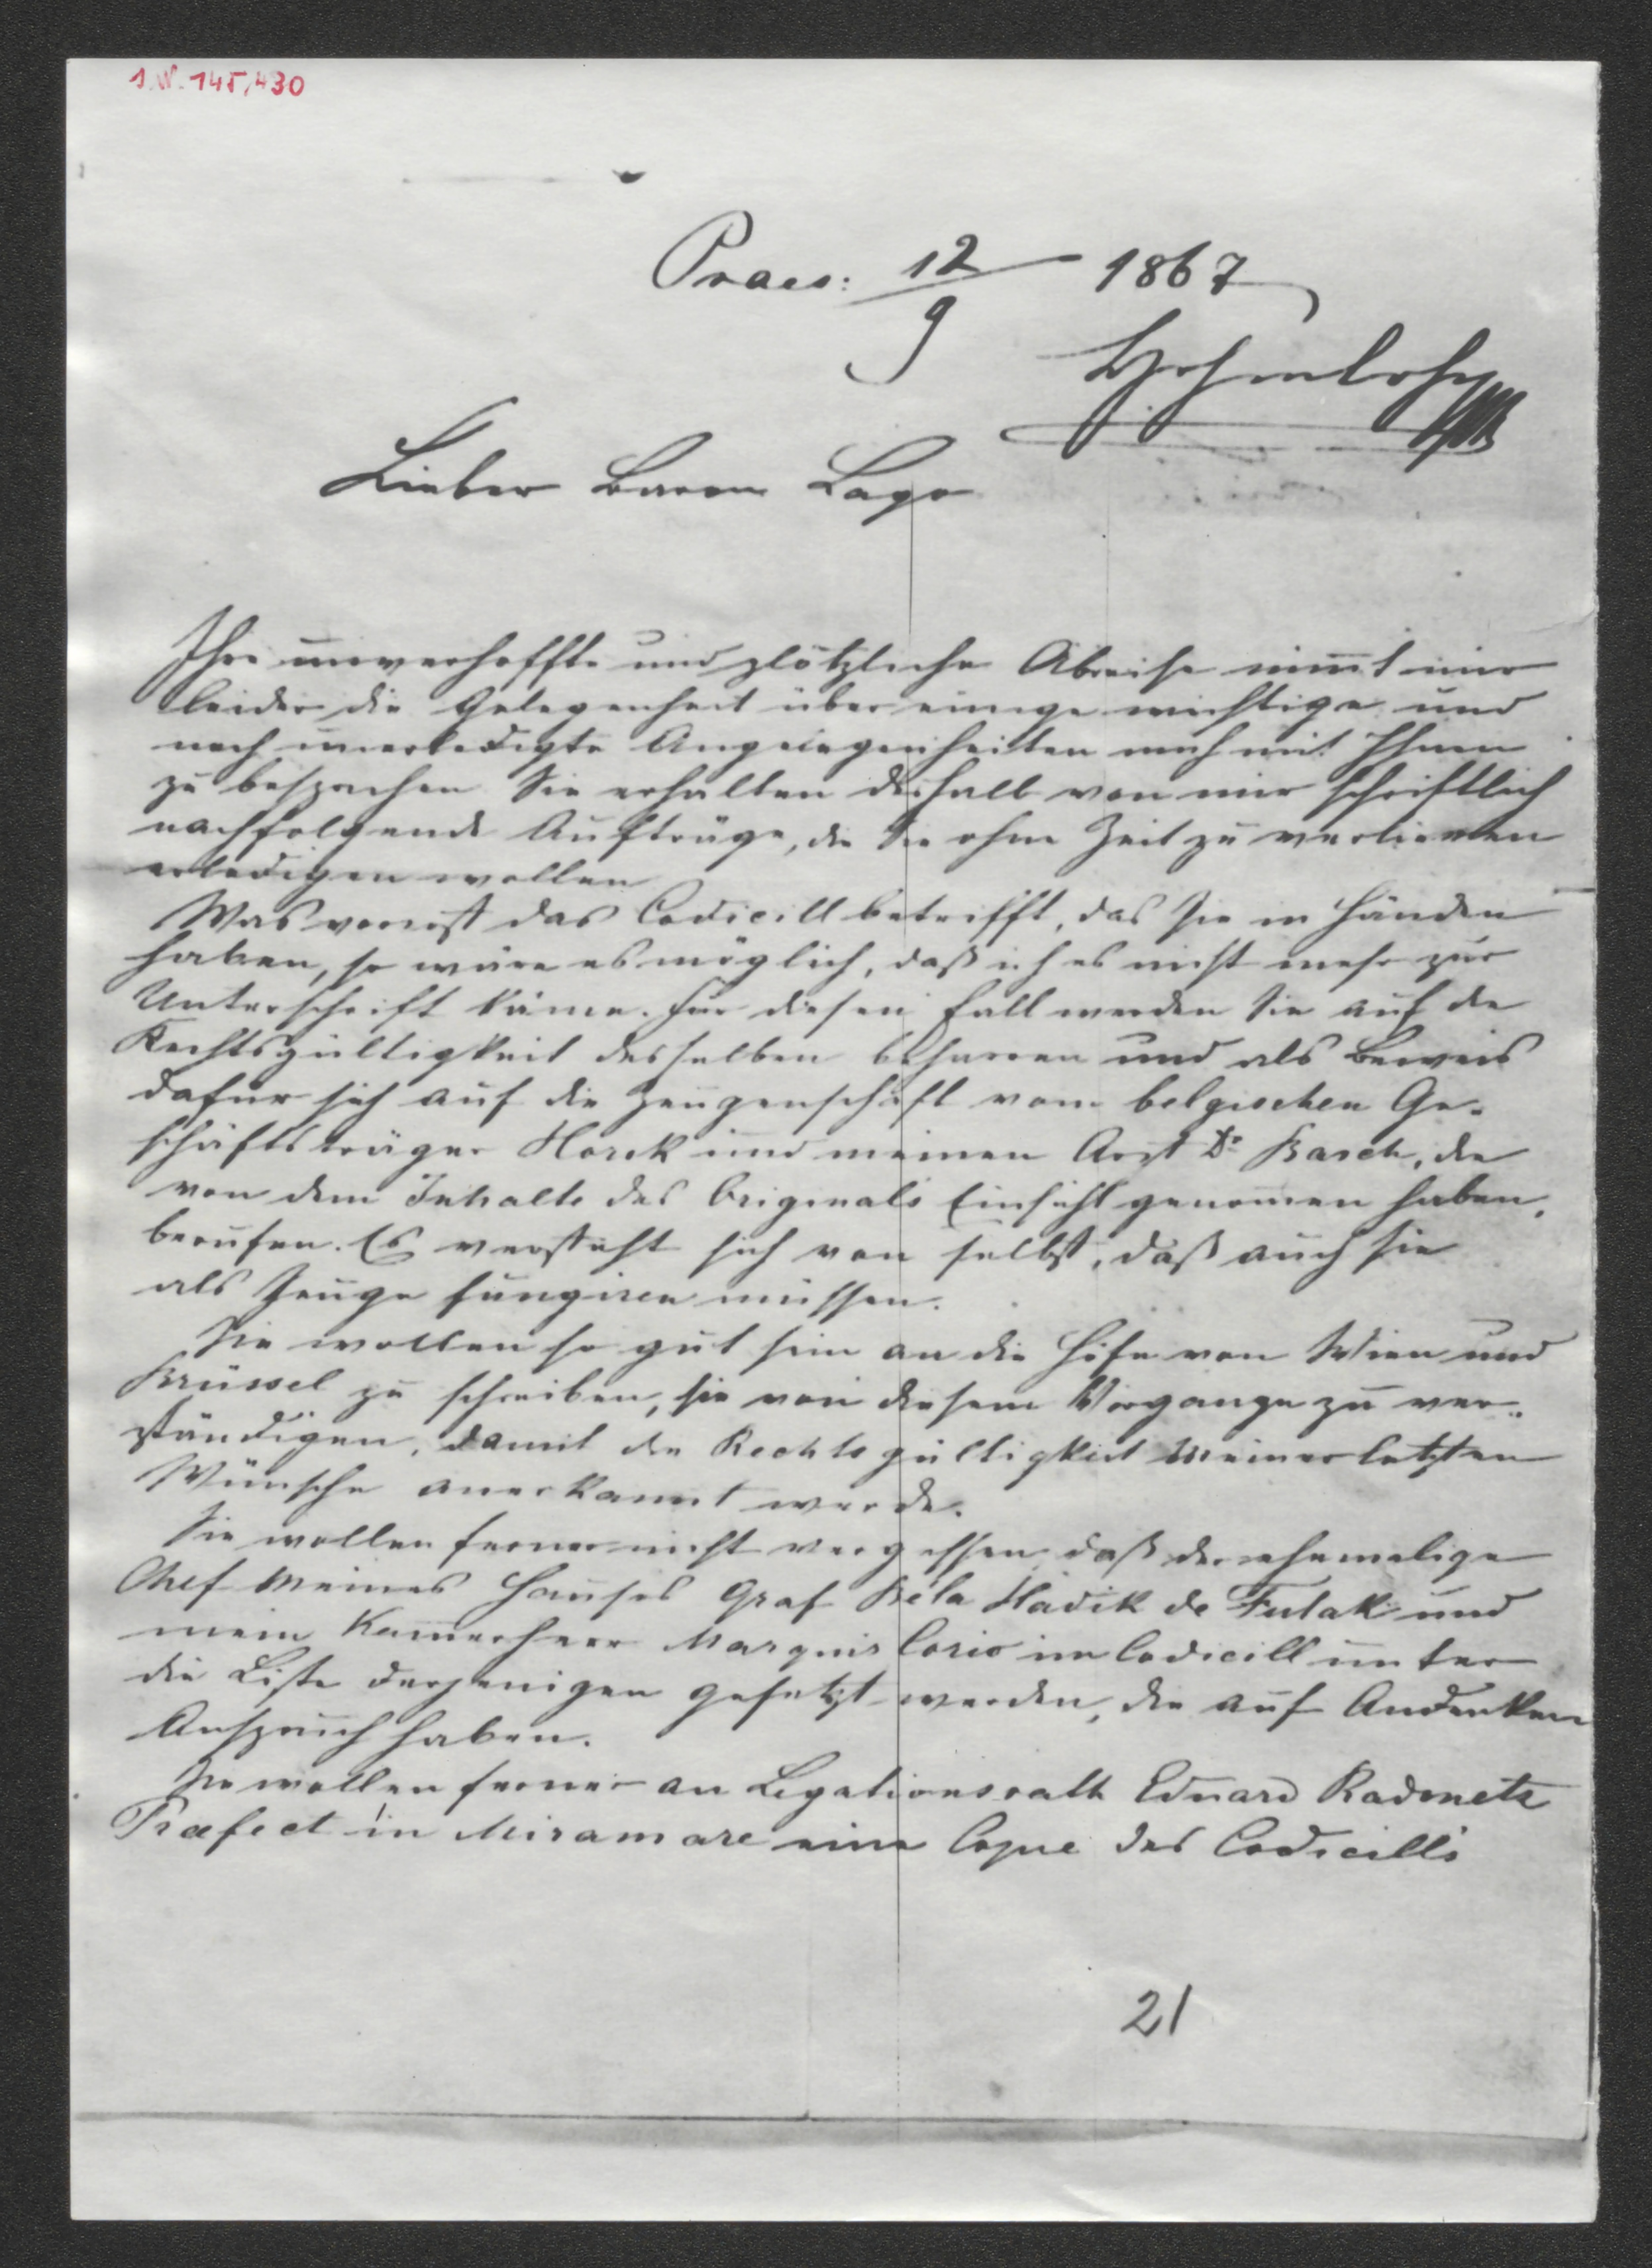 1.N. 145,430
Praes: 12/9 1867
Hohenlohe
Lieber Baron Lago
Ihre unverhoffte und plötzliche Abreise nim̅t mir
leider die Gelegenheit über einige wichtige und
noch unerledigte Angelegenheiten mich mit Ihnen
zu besprechen Sie erhalten deshalb von mir schriftlich
nachfolgende Aufträge, die Sie ohne Zeit zu verlieren
erledigen wollen
Was vorerst das Codicill betrifft, das Sie in Händen
haben, so wäre es möglich, daß ich es nicht mehr zur
Unterschrift käme. Für diesen Fall werden Sie auf die
Rechtsgültigkeit desselben beharren und als Beweis
dafür sich auf die Zeugenschaft vom belgischen Ge-
schäftsträger Horek und meinen Arzt Dr Basch, die
von dem Inhalte des Originals Einsicht genom̅en haben,
berufen. Es versteht sich von selbst, daß auch Sie
als Zeuge fungiren müssen.
Sie wollen so gut sein an die Höfe von Wien und
Brüssel zu schreiben, sie von diesem Vorgange zu ver-
ständigen, damit die Rechtsgültigkeit Meiner letzten
Wünsche anerkannt werde.
Sie wollen ferner nicht vergessen daß der ehemalige
Chef Meines Hauses Graf Béla Hadik de Futak und
mein Kam̅erherr Marquis Corio im Codicill unter
die Liste derjenigen gesetzt werden, die auf Andenken
Anspruch haben.
Sie wollen ferner an Legationsrath Eduard Radonetz
Præfect in Miramare eine Copie des Codicills
21